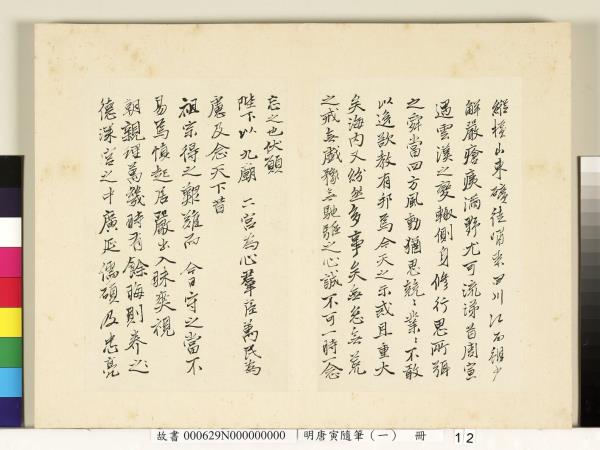 縱橫山東礦徒嘯聚四川江西雖少
解嚴瘡痍滿野尤可流涕昔周宣
遇雲漢之變輒側身修行思所弭
之舜當四方風動猶思兢〻業〻不敢
以逸欲教有邦焉今天之示戒且重大
矣海内又紛然多事矣無怠無荒
之戒無戲豫無馳驅之心誠不可一時一念
忘之也伏願
陛下以九廟二宮為心羣臣萬民為
慮及念天下昔
祖宗得之艱難而今日守之當不
易焉慎起居嚴出入昧爽視
朝親理萬幾時有餘晦則養之
德深宮之中廣延儒碩及忠亮
故書000629N000000000 明唐寅隨筆（一） 冊 12